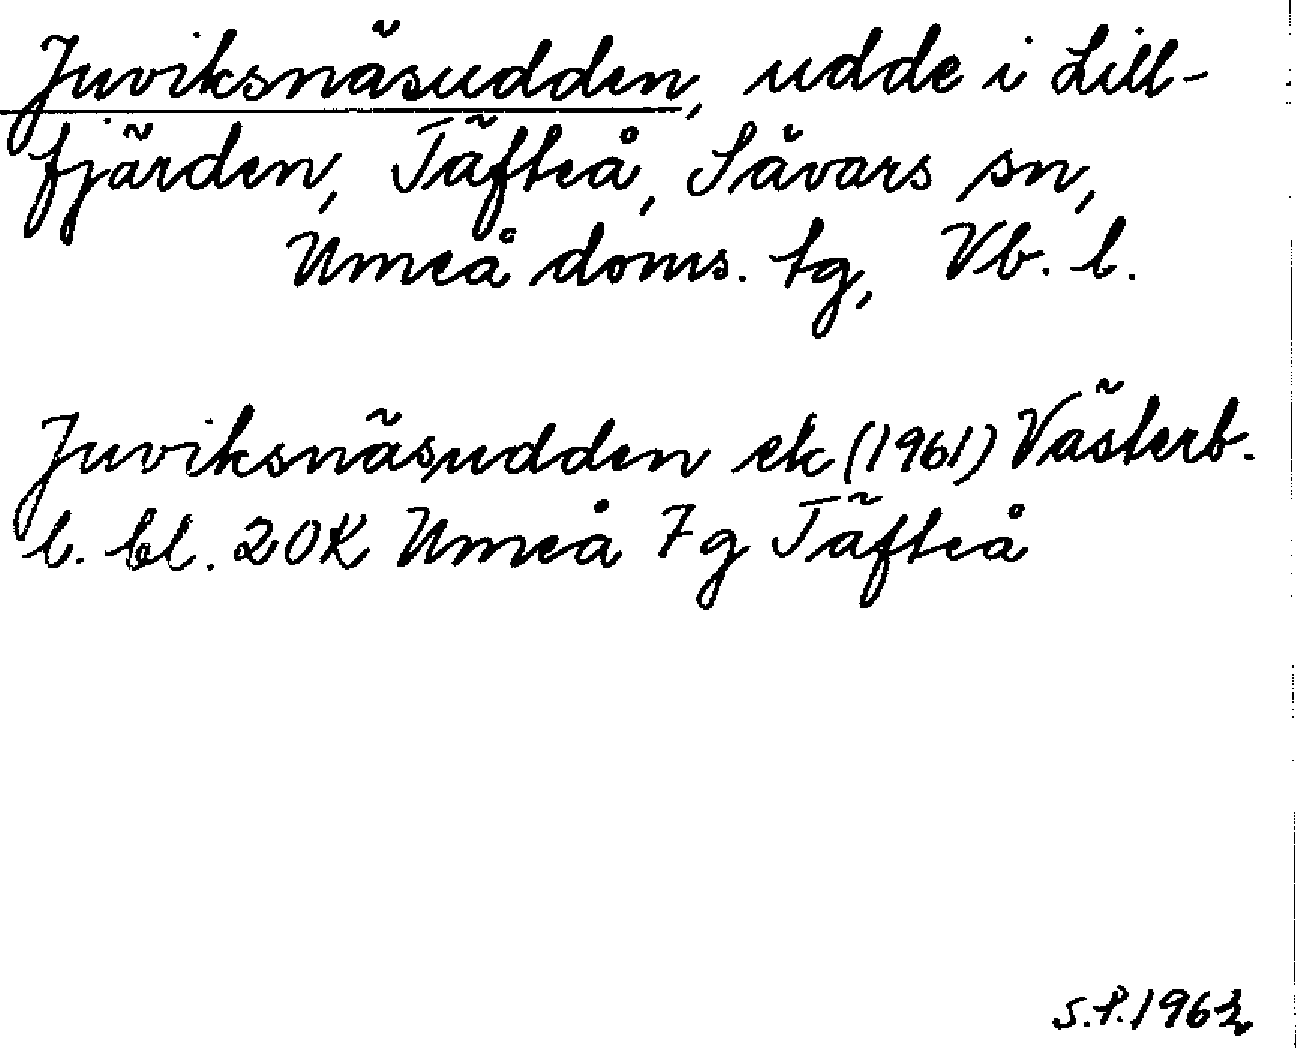 Juviksnäsudden, udde i Lill-
fjärden, Täfteå, Sävars sn,
Umeå doms. tg, Vb. l.
Juviksnäsudden ek (1961) Västerb.
l. bl. 20K Umeå 7g Täfteå
S.P. 1963